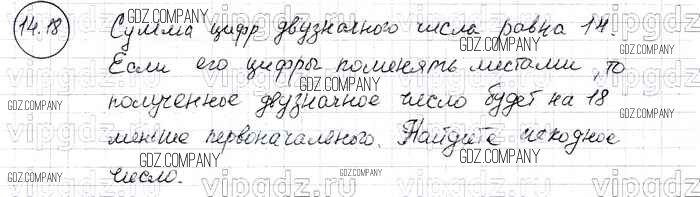 14.18 Сумма цифр двузначного числа равна 14.
Если его цифры поменять местами, то
полученное двузначное число будет на 18
меньше первоначального. Найдите исходное
число.
GDZ.COMPANY
GDZ.COMPANY
GDZ.COMPANY
GDZ.COMPANY
GDZ.COMPANY
GDZ.COMPANY
GDZ.COMPANY
GDZ.COMPANY
GDZ.COMPANY
GDZ.COMPANY
vipgdz.ru
vipgdz.ru
vipgdz.ru